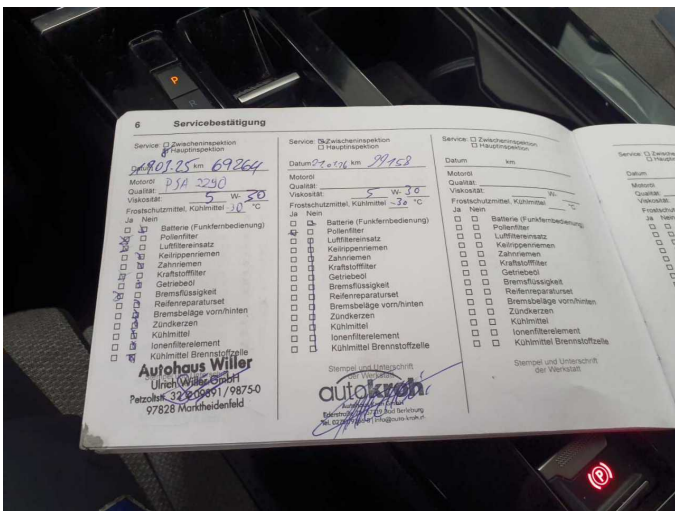 P
R
6 Servicebestätigung
Service: Zwischeninspektion
Hauptinspektion
km 69264
Motoröl PSA 2290
Qualität:
Viskosität: 5 W- 30
Frostschutzmittel, Kühlmittel -30 °C
Ja Nein
Batterie (Funkfernbedienung)
Pollenfilter
Luftfiltereinsatz
Keilrippenriemen
Zahnriemen
Kraftstofffilter
Getriebeöl
Bremsflüssigkeit
Reifenreparaturset
Bremsbeläge vorn/hinten
Zündkerzen
Kühlmittel
Ionenfilterelement
Kühlmittel Brennstoffzelle
Autohaus Willer
Ulrich Willer GmbH
Petzoltstr. 32
97828 Marktheidenfeld
Service: Zwischeninspektion
Hauptinspektion
Datum km
Motoröl
Qualität:
Viskosität: 5 W- 30
Frostschutzmittel, Kühlmittel -30 °C
Ja Nein
Batterie (Funkfernbedienung)
Pollenfilter
Luftfiltereinsatz
Keilrippenriemen
Zahnriemen
Kraftstofffilter
Getriebeöl
Bremsflüssigkeit
Reifenreparaturset
Bremsbeläge vorn/hinten
Zündkerzen
Kühlmittel
Ionenfilterelement
Kühlmittel Brennstoffzelle
Stempel und Unterschrift
der Werkstatt
autokroh
Service: Zwischeninspektion
Hauptinspektion
Datum km
Motoröl
Qualität:
Viskosität: W-
Frostschutzmittel, Kühlmittel °C
Ja Nein
Batterie (Funkfernbedienung)
Pollenfilter
Luftfiltereinsatz
Keilrippenriemen
Zahnriemen
Kraftstofffilter
Getriebeöl
Bremsflüssigkeit
Reifenreparaturset
Bremsbeläge vorn/hinten
Zündkerzen
Kühlmittel
Ionenfilterelement
Kühlmittel Brennstoffzelle
Stempel und Unterschrift
der Werkstatt
Service:
Datum
Motoröl
Qualität:
Viskosität:
Ja
P